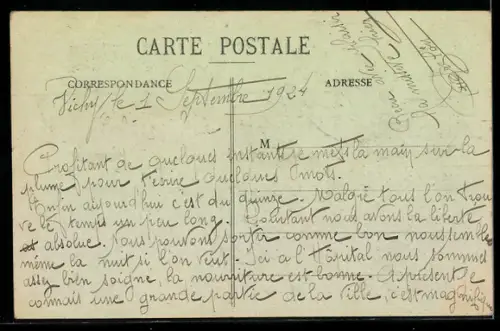 CARTE POSTALE
CORRESPONDANCE
ADRESSE
Vichy, le 1 Septembre 1924
M
Profitant de quelques instants je mets la main sur la
plume pour t'ecrire quelques mots.
Enfin aujourd'hui c'est du quinze. Malgie tous l'on trou
ve le temps un peu long. Pourtant nous avons la liberte
absolue. Nous pouvons sortir comme bon nous semble
même la nuit si l'on veut. Ici a l'Hôpital nous sommes
assez bien soigne, la nourriture est bonne. A present je
connais une grande partie de la ville, c'est magnifique